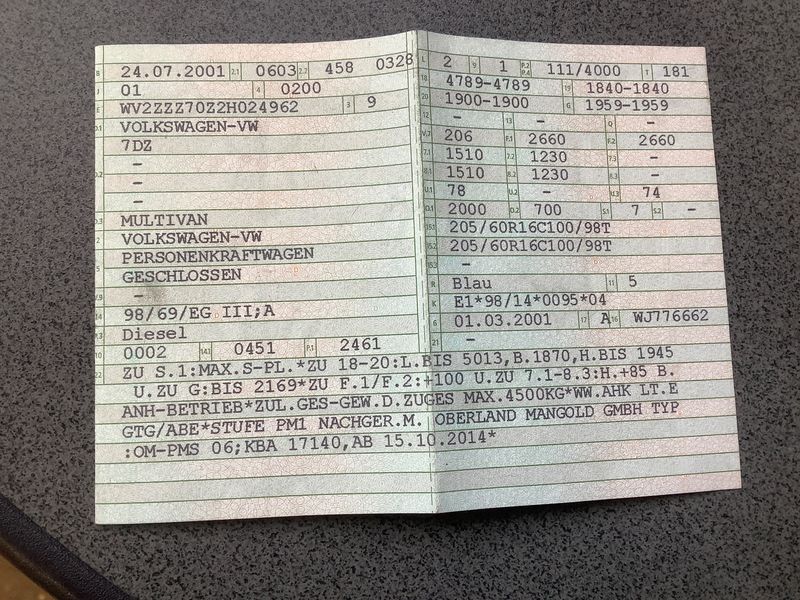 B 24.07.2001 2.1 0603 2.2 458 0328
J 01 4 0200
E WV2ZZZ70Z2H024962 3 9
D.1 VOLKSWAGEN-VW
7DZ
D.2 –
–
–
D.3 MULTIVAN
2 VOLKSWAGEN-VW
5 PERSONENKRAFTWAGEN
GESCHLOSSEN
V.9 –
14 98/69/EG III;A
P.3 Diesel
10 0002 14.1 0451 P.1 2461
L 2 9 1 P.2 P.4 111/4000 T 181
18 4789-4789 19 1840-1840
20 1900-1900 G 1959-1959
12 – 13 – Q –
V.7 206 F.1 2660 F.2 2660
7.1 1510 7.2 1230 7.3 –
8.1 1510 8.2 1230 8.3 –
U.1 78 U.2 – U.3 74
O.1 2000 O.2 700 S.1 7 S.2 –
15.1 205/60R16C100/98T
15.2 205/60R16C100/98T
15.3 –
R Blau 11 5
K E1*98/14*0095*04
6 01.03.2001 17 A 16 WJ776662
21
22 ZU S.1:MAX.S-PL.*ZU 18-20:L.BIS 5013,B.1870,H.BIS 1945
U.ZU G:BIS 2169*ZU F.1/F.2:+100 U.ZU 7.1-8.3:H.+85 B.
ANH-BETRIEB*ZUL.GES-GEW.D.ZUGES MAX.4500KG*WW.AHK LT.E
GTG/ABE*STUFE PM1 NACHGER.M. OBERLAND MANGOLD GMBH TYP
:OM-PMS 06;KBA 17140,AB 15.10.2014*